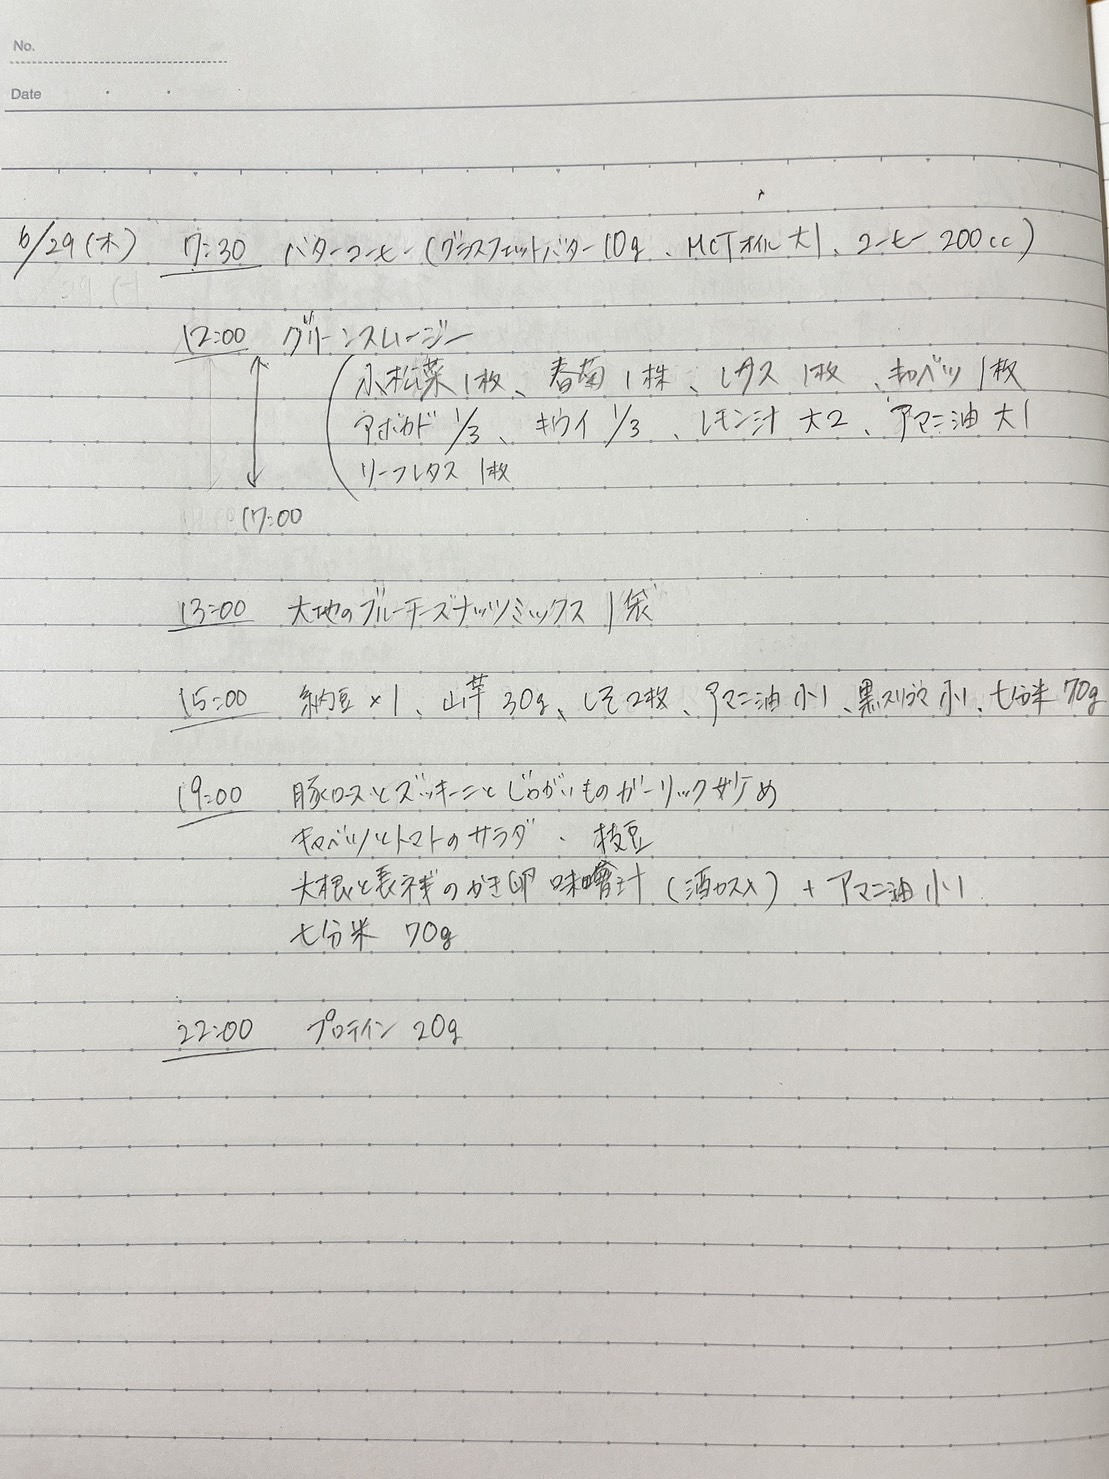 No.
Date
6/29(木) 7:30 バターコーヒー(グラスフェットバター10g、MCTオイル大1、コーヒー200cc)
12:00 グリーンスムージー
小松菜1枚、春菊1株、レタス1枚、キャベツ1枚
アボカド1/3、キウイ1/3、レモン汁大2、アマニ油大1
リーフレタス1枚
17:00
13:00 大地のブルーチーズナッツミックス1袋
15:00 納豆×1、山芋30g、しそ2枚、アマニ油小1、黒スリゴマ小1、七分米70g
19:00 豚ロースとズッキーニとじゃがいものガーリック炒め
キャベツとトマトのサラダ・枝豆
大根と長ネギのかき卵味噌汁(酒カス入)+アマニ油小1
七分米70g
22:00 プロテイン20g